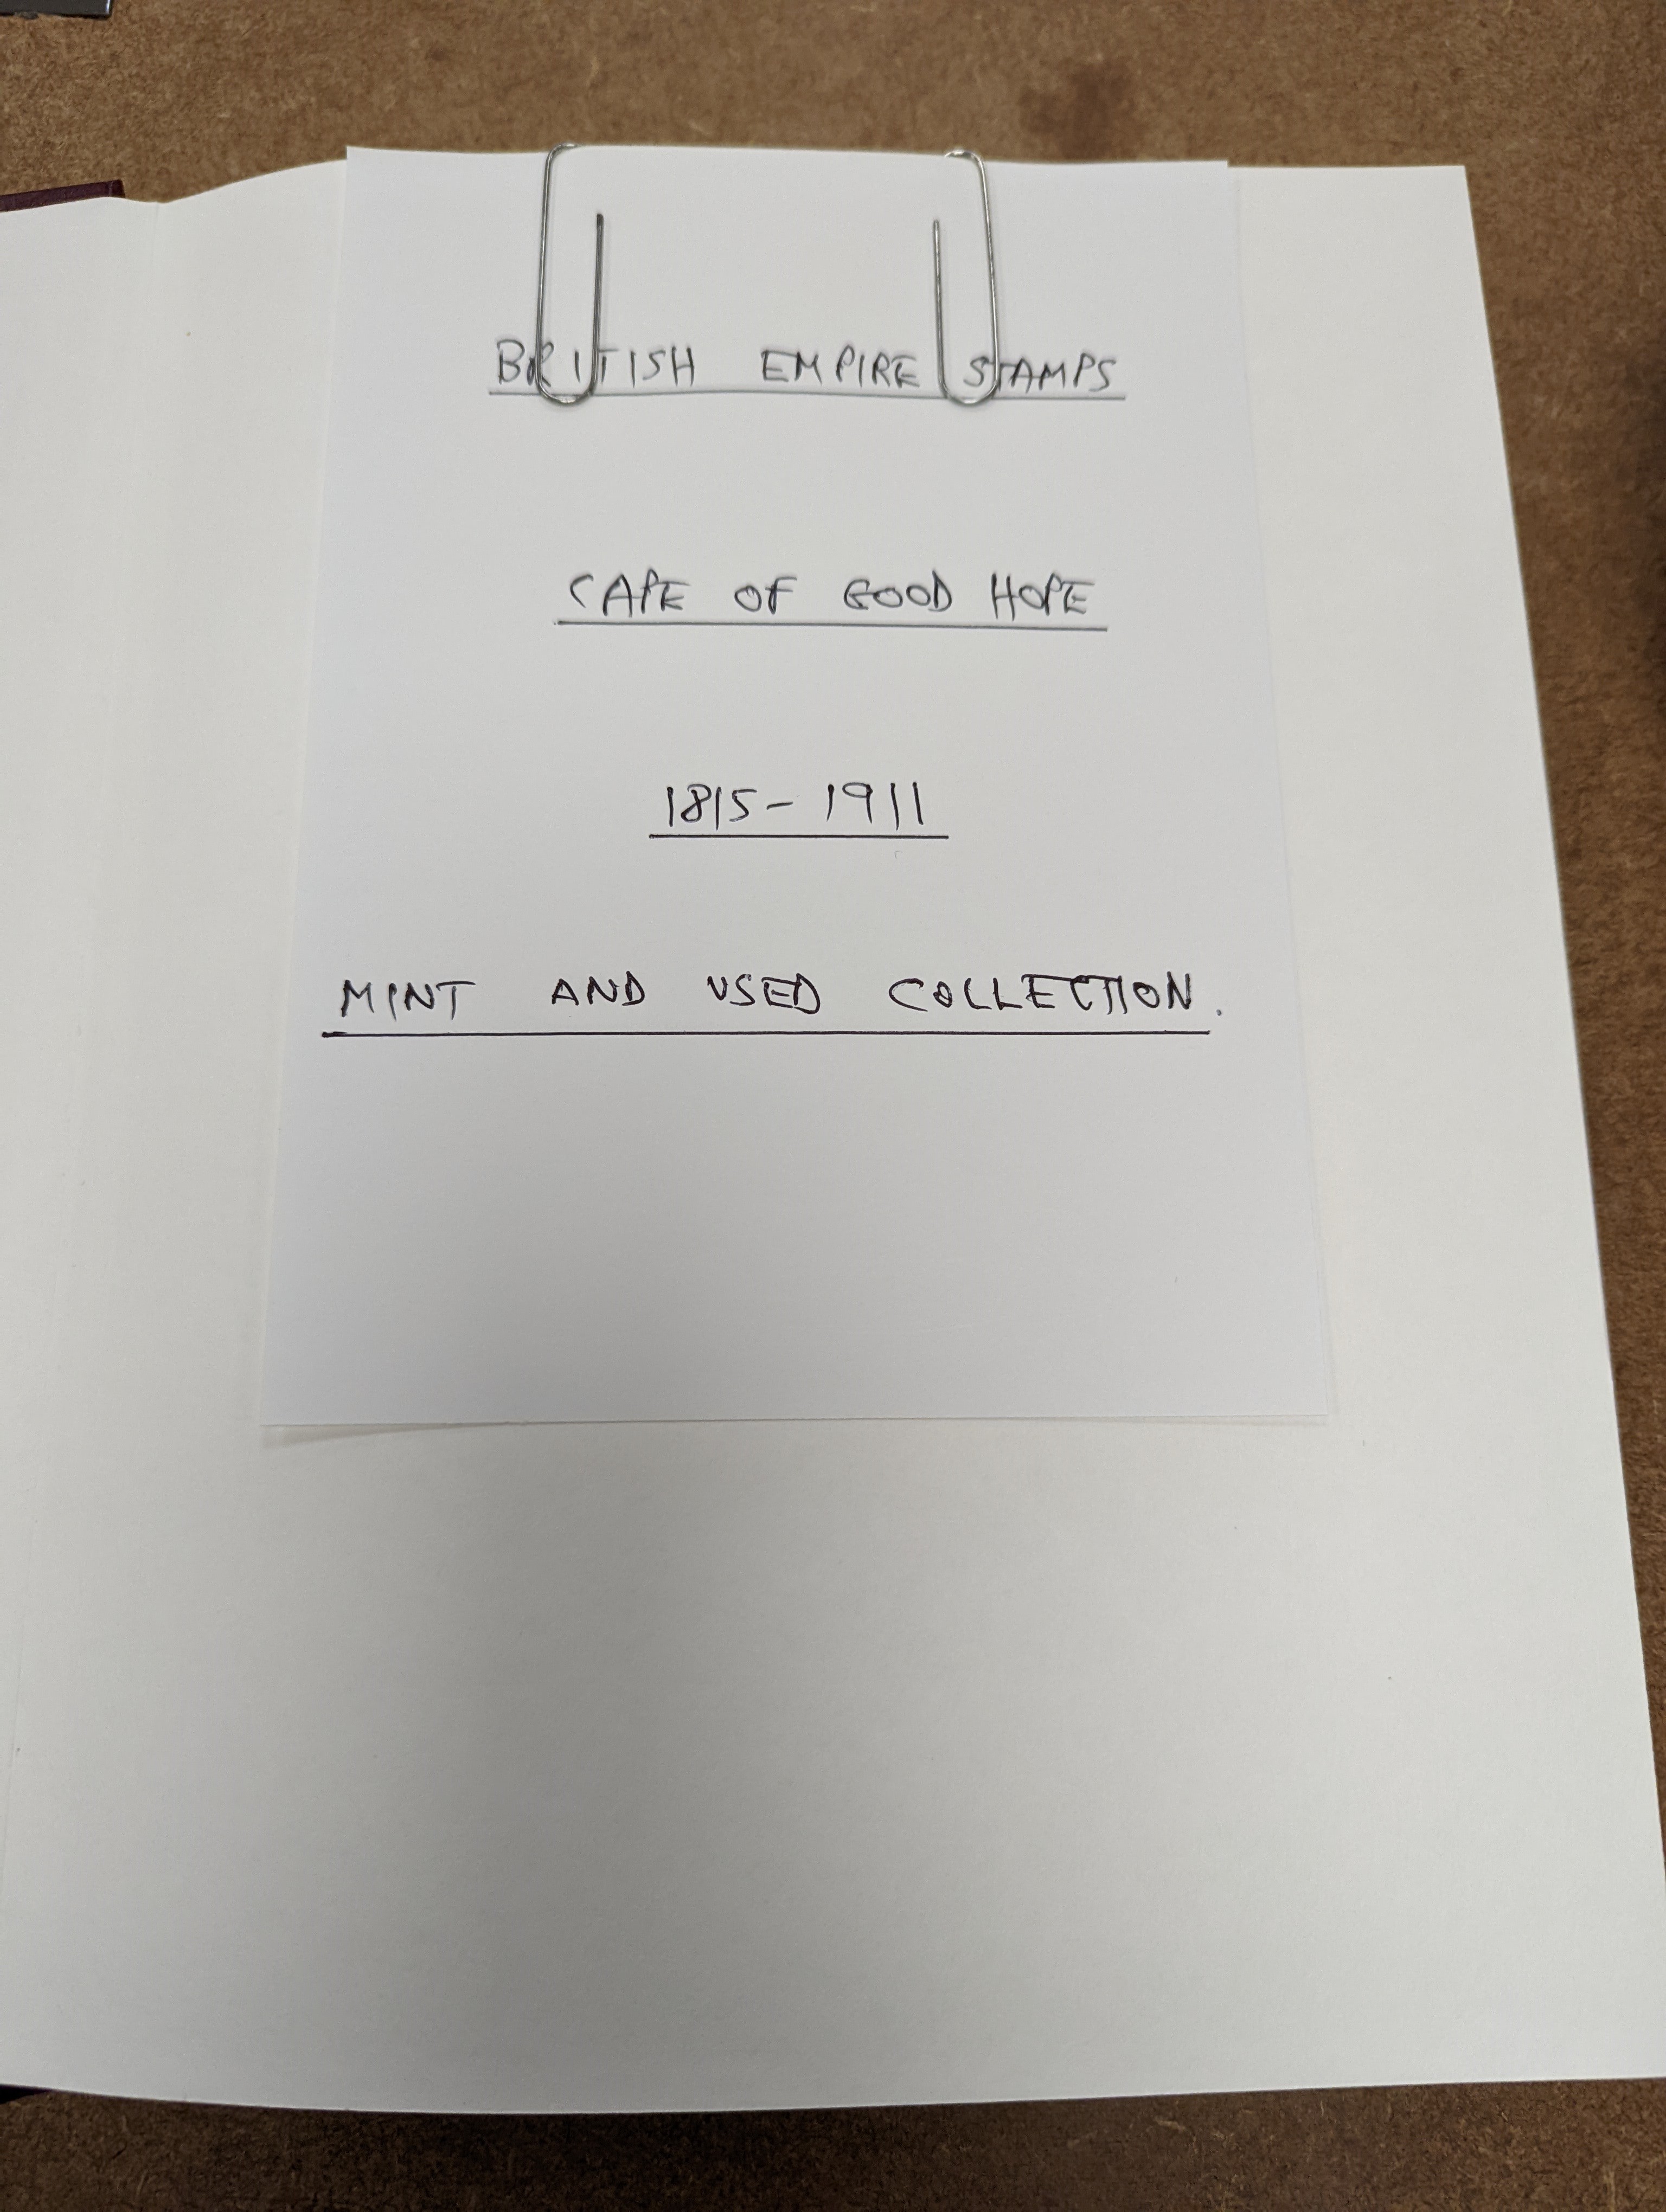 BRITISH EMPIRE STAMPS
CAPE OF GOOD HOPE
1815-1911
MINT AND USED COLLECTION.